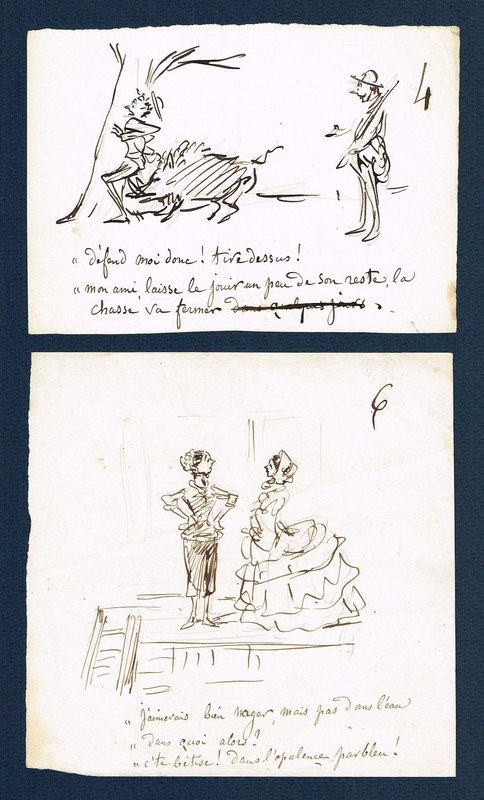 4
" défend moi donc ! tire dessus !
" mon ami, laisse le jouir un peu de son reste, la
chasse va fermer dans quelques jours .
6
" j'aimerais bien nager, mais pas dans l'eau
" dans quoi alors ?
" c'te bêtise ! dans l'opulence, parbleu !